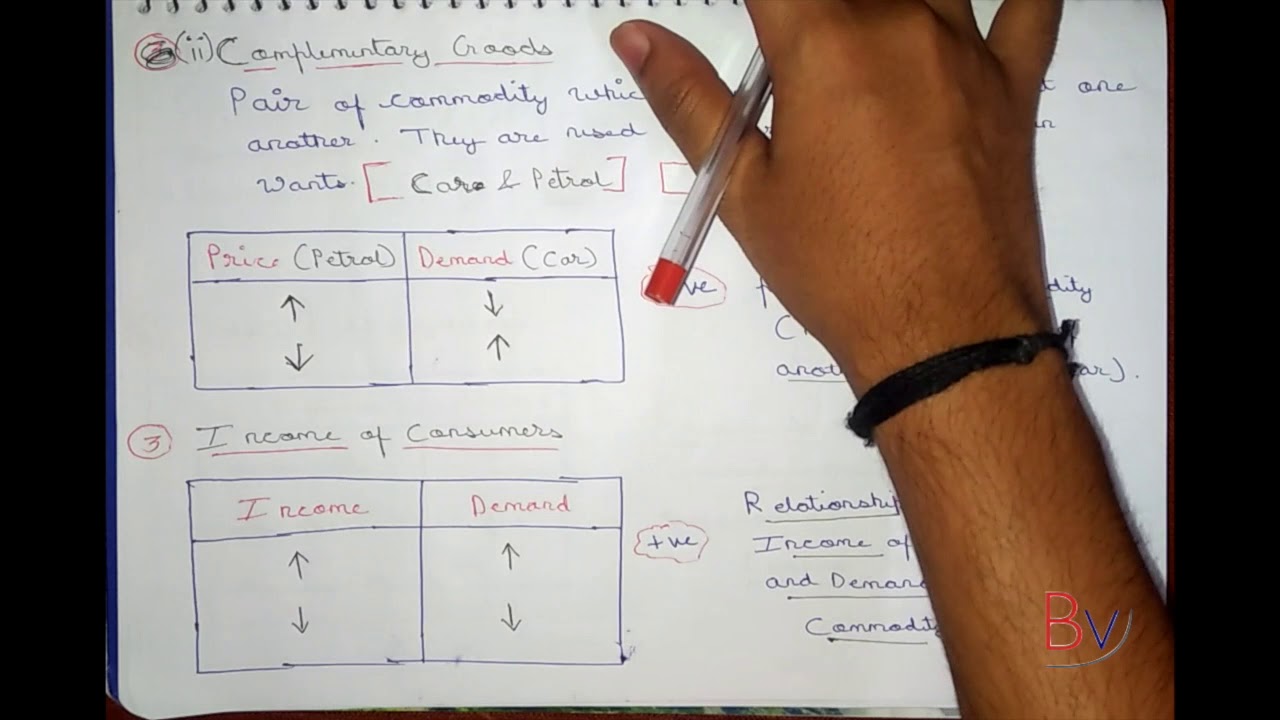 (ii) Complementary Goods
Pair of commodity one
another. They are used
wants. [ Car & Petrol ] [
Price (Petrol) Demand (Car)
↑ ↓
↓ ↑
(
3 Income of Consumers
Income Demand
↑ ↑
↓ ↓
+ve
Relationship
Income of
and Demand
Commodity
BV